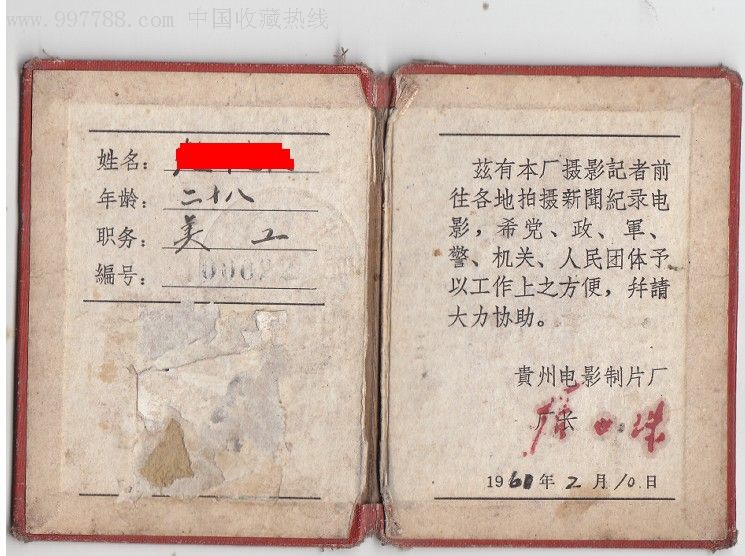 www.997788.com 中国收藏热线
姓名：
年龄：二十八
职务：美工
編号：00022
茲有本厂摄影記者前
往各地拍摄新聞紀录电
影，希党、政、軍、
警、机关、人民团体予
以工作上之方便，幷請
大力协助。
貴州电影制片厂
厂长
1961年2月10日